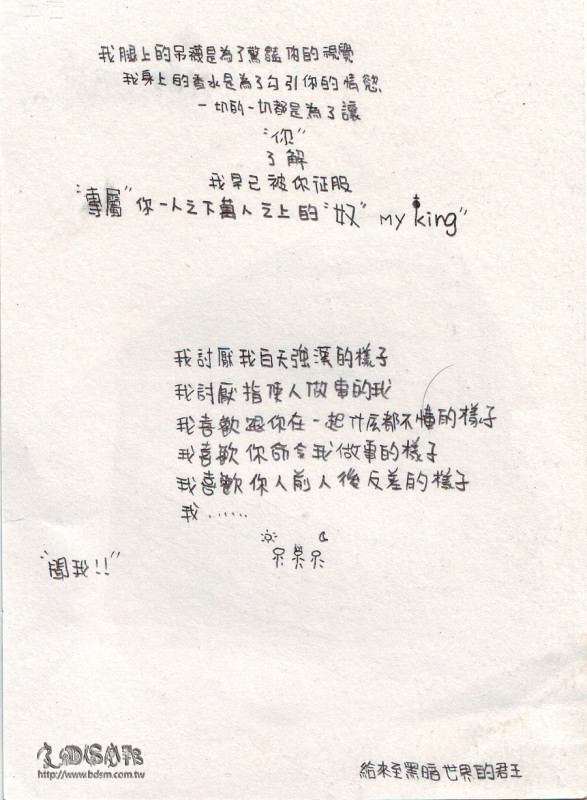 我腿上的吊襪是為了驚豔你的視覺
我身上的香水是為了勾引你的情慾
一切的一切都是為了讓
"你"
了解
我早已被你征服
"專屬"你一人之下萬人之上的"奴" my king"
我討厭我白天強溪的樣子
我討厭指使人做事的我
我喜歡跟你在一起什麼都不懂的樣子
我喜歡你命令我做事的樣子
我喜歡你人前人後反差的樣子
我......
"聞我!!"
http://www.bdsm.com.tw
給來至黑暗世界的君王